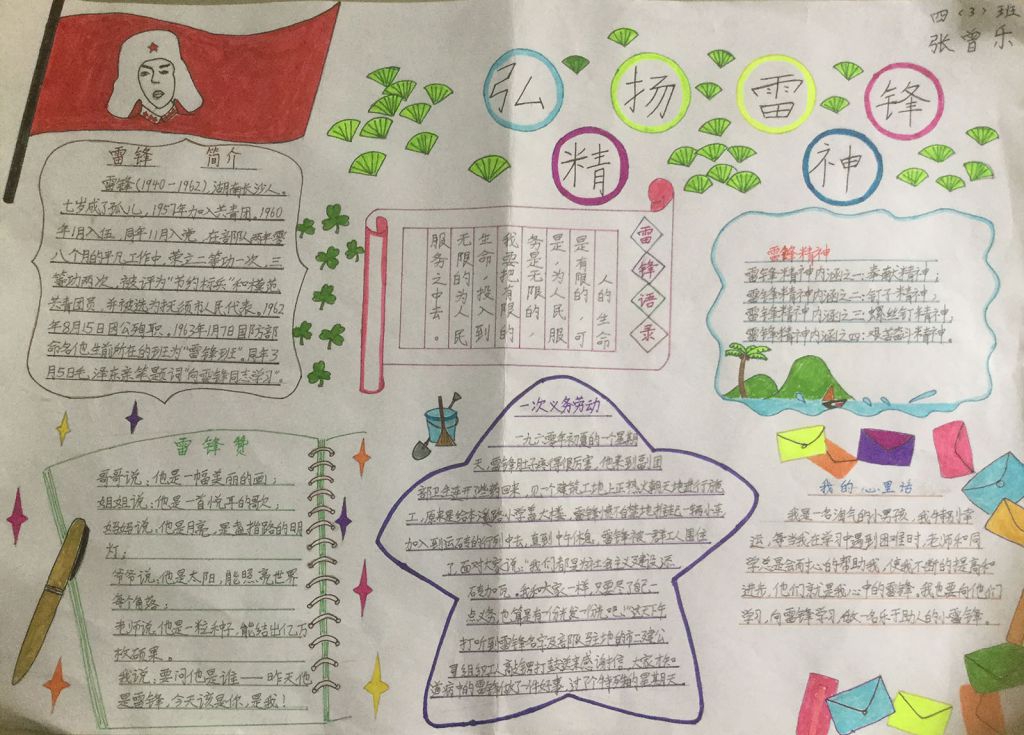 四（3）班
张曾乐
弘扬雷锋
精神
雷锋 简介
雷锋(1940-1962),湖南长沙人。
七岁成了孤儿,1957年加入共青团。1960
年1月入伍,同年11月入党,在部队两年零
八个月的平凡工作中,荣立二等功一次,三
等功两次,被评为“节约标兵”和模范
共青团员,并被选为抚顺市人民代表。1962
年8月15日因公殉职。1963年1月7日国防部
命名他生前所在的班为“雷锋班”。同年3
月5日毛泽东亲笔题词“向雷锋同志学习”。
雷锋语录
人的生命
是有限的,可
是,为人民服
务是无限的,
我要把有限的
生命,投入到
无限的为人民
服务之中去。
雷锋精神
雷锋精神内涵之一:奉献精神;
雷锋精神内涵之二:钉子精神;
雷锋精神内涵之三:螺丝钉精神;
雷锋精神内涵之四:艰苦奋斗精神.
雷锋赞
哥哥说:他是一幅美丽的画;
姐姐说:他是一首悦耳的歌;
妈妈说:他是月亮,是盏指路的明
灯;
爷爷说:他是太阳,能照亮世界
每个角落;
老师说:他是一粒种子,能结出亿万
枚硕果。
我说:要问他是谁——昨天他
是雷锋,今天该是你,是我!
一次义务劳动
一九六零年初夏的一个星期
天,雷锋肚子疼得很厉害,他来到团
部卫生连开了些药回来,见一个建筑工地上正热火朝天地进行施
工,原来是给本溪路小学盖大楼,雷锋情不自禁地推起一辆小车
加入到运砖的行列中去,直到中午休息,雷锋被一群工人围住
了,面对大家说:“我们都是为社会主义建设添
砖加瓦,我和大家一样,只要尽了自己一
点义务,也算是有一分光发一分光吧。”这天下午
打听到雷锋名字及部队驻地的市二建公
司组织工人敲锣打鼓送来感谢信,大家才知
道病中的雷锋做了一件好事,过了个特殊的星期天。
我的心里话
我是一名淘气的小男孩,我特别幸
运,每当我在学习中遇到困难时,老师和同
学总是会耐心的帮助我,使我不断的提高和
进步,他们就是我心中的雷锋,我也要向他们
学习,向雷锋学习,做一名乐于助人的小雷锋。